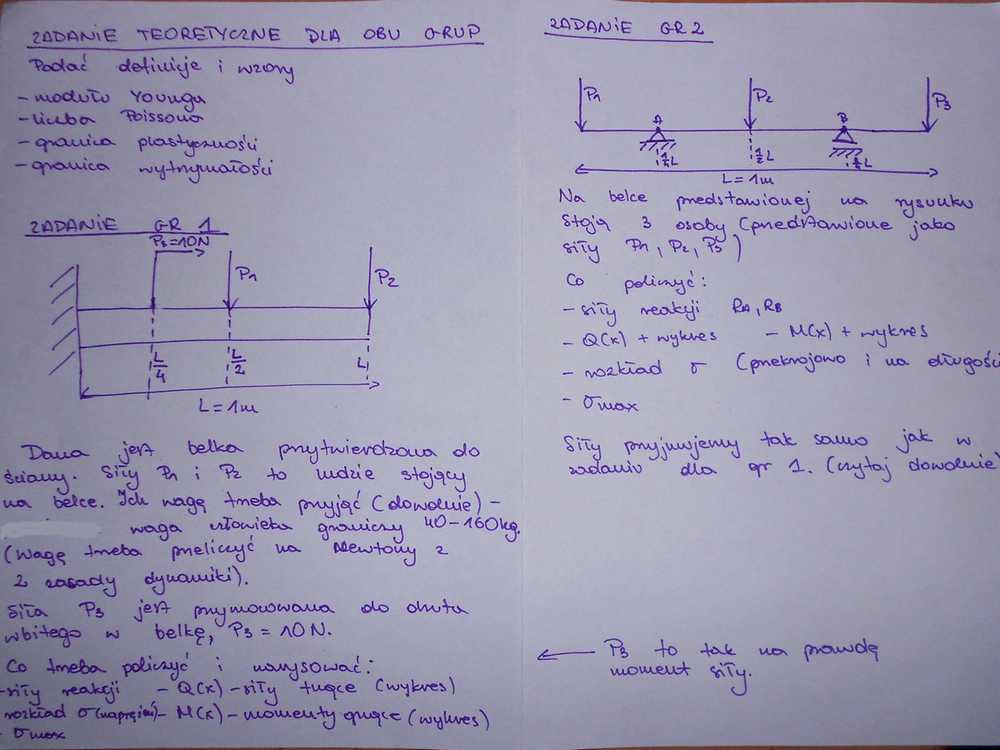 ZADANIE TEORETYCZNE DLA OBU GRUP
Podać definicje i wzory
- modułu Younga
- liczba Poissona
- granica plastyczności
- granica wytrzymałości
ZADANIE GR 1
P3=10N
P1
P2
L/4
L/2
L
L=1m
Dana jest belka przytwierdzona do
ściany. Siły P1 i P2 to ludzie stojący
na belce. Ich wagę trzeba przyjąć (dowolnie) -
waga człowieka graniczy 40-160kg.
(Wagę trzeba przeliczyć na Newtony z
2 zasady dynamiki).
Siła P3 jest przymocowana do drutu
wbitego w belkę, P3 = 10N.
Co trzeba policzyć i narysować:
- siły reakcji - Q(x) - siły tnące (wykres)
rozkład σ (naprężeń) - M(x) - momenty gnące (wykres)
- σmax
ZADANIE GR2
P1
P2
P3
A
B
1/4L
1/2L
L=1m
Na belce przedstawionej na rysunku
stoją 3 osoby (przedstawione jako
siły P1, P2, P3)
Co policzyć:
- siły reakcji RA, RB
- Q(x) + wykres - M(x) + wykres
- rozkład σ (przekrojowo i na długości
- σmax
Siły przyjmujemy tak samo jak w
zadaniu dla gr 1. (czytaj dowolnie)
← P3 to tak na prawdę
moment siły.